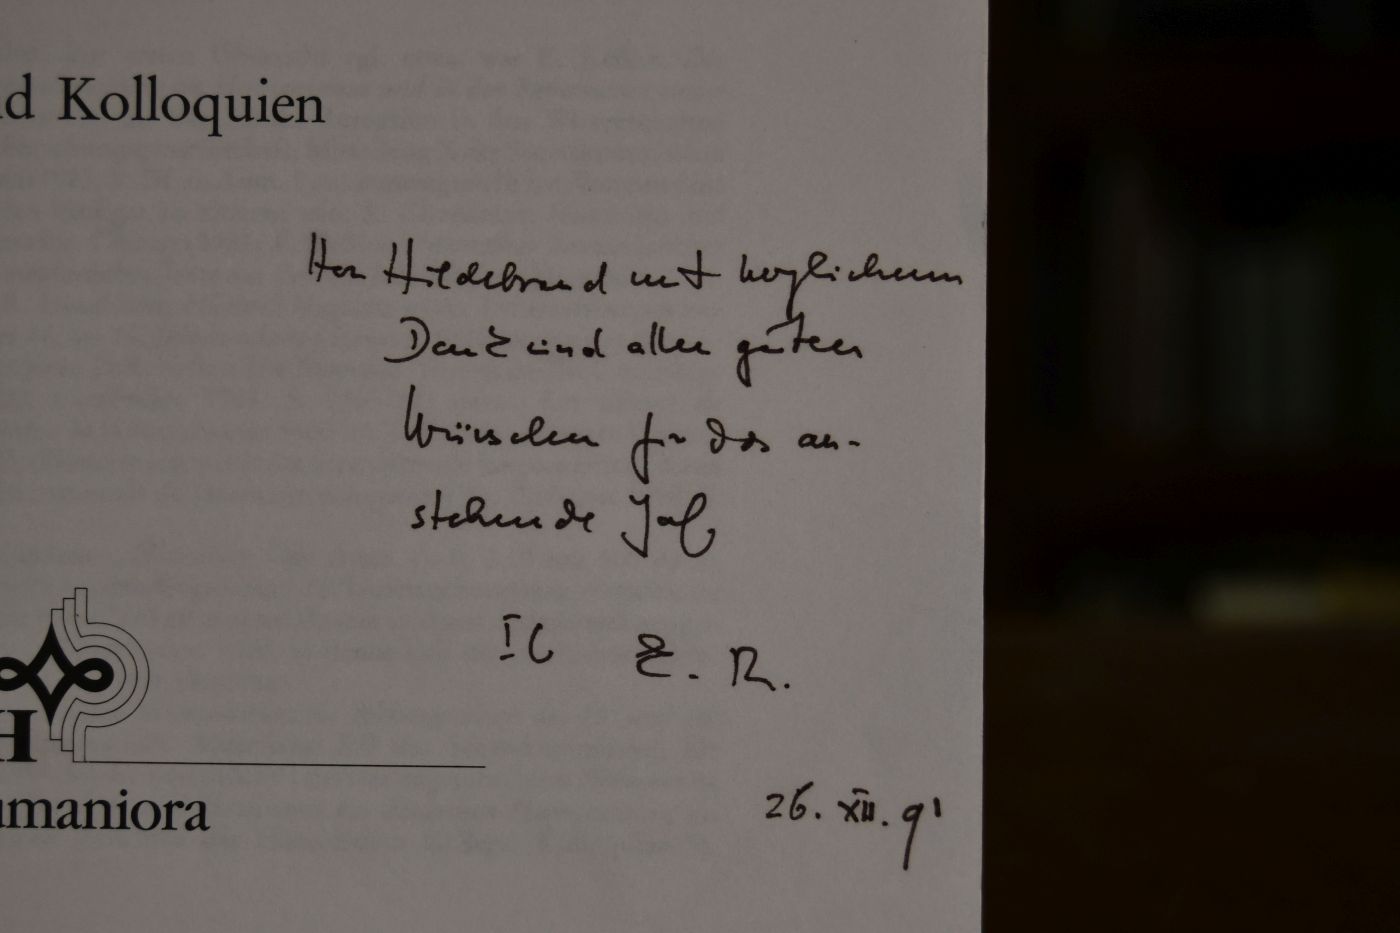 nd Kolloquien
Herrn Hildebrand mit herzlichem
Dank und allen guten
Wünschen für das an-
stehende Jahr
E. R.
H
umaniora
26. XII. 91